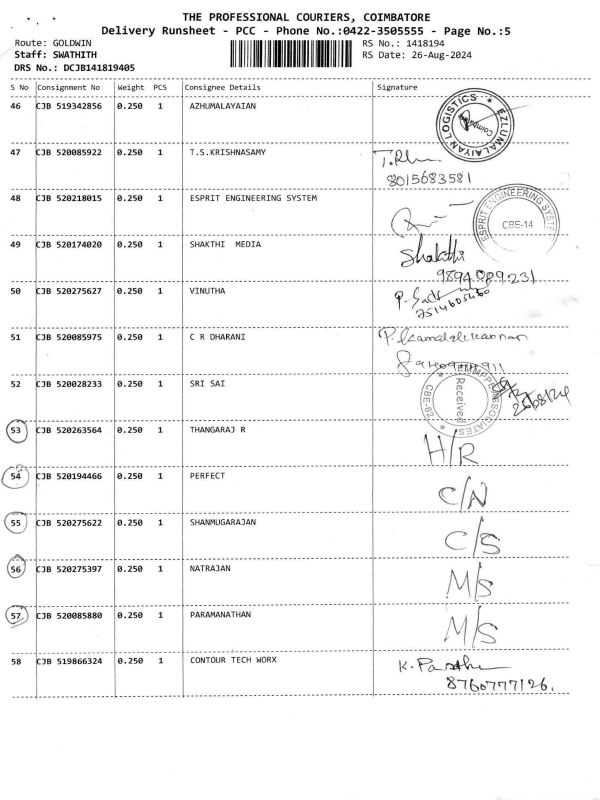 THE PROFESSIONAL COURIERS, COIMBATORE
Delivery Runsheet - PCC - Phone No.:0422-3505555 - Page No.:5
Route: GOLDWIN RS No.: 1418194
Staff: SWATHITH RS Date: 26-Aug-2024
DRS No.: DCJB141819405
S No Consignment No Weight PCS Consignee Details Signature
46 CJB 519342856 0.250 1 AZHUMALAYAIAN
EZLUMALAIYAN LOGISTICS
47 CJB 520085922 0.250 1 T.S.KRISHNASAMY
8015683581
48 CJB 520218015 0.250 1 ESPRIT ENGINEERING SYSTEM
ESPRIT ENGINEERING SYSTEM
CBE-14
49 CJB 520174020 0.250 1 SHAKTHI MEDIA Shakthi
9894 009231
50 CJB 520275627 0.250 1 VINUTHA
51 CJB 520085975 0.250 1 C R DHARANI
52 CJB 520028233 0.250 1 SRI SAI
CBE-62
Received
26/08/24
53 CJB 520263564 0.250 1 THANGARAJ R H/R
54 CJB 520194466 0.250 1 PERFECT C/N
55 CJB 520275622 0.250 1 SHANMUGARAJAN C/S
56 CJB 520275397 0.250 1 NATRAJAN M/S
57 CJB 520085880 0.250 1 PARAMANATHAN M/S
58 CJB 519866324 0.250 1 CONTOUR TECH WORX
8760777126.